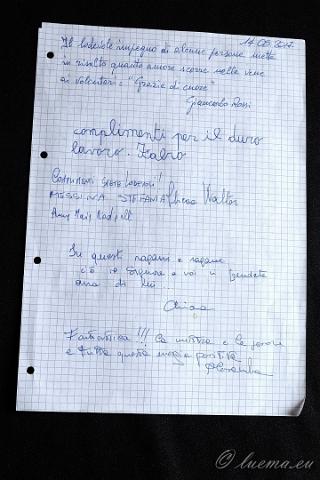 14.08.2017
Il lodevole impegno di alcune persone mette
in risalto quanto amore scorre nelle vene
dei volontari. "Grazie di cuore"
Giancarlo Rossi
complimenti per il duro
lavoro. Fabio
COMPLIMENTI SIETE LODEVOLI!
MESSINA STEFANIA Walter
Amy
In questi ragazzi e ragazze
c'è il Signore e voi vi
di lui...
Chiara
Fantastica!!! la mostra e le persone
e tutta questa energia positiva
© luema.eu